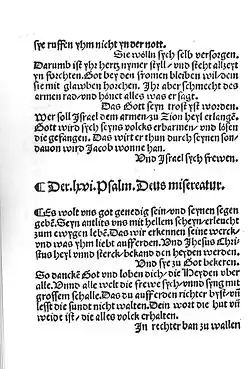 sye ruffen yhm nicht yn der nott.
Sie wölln sych selb versorgen.
Darumb ist yhr hertz nymer still / und steht allzeyt
yn forchten. Got bey den fromen bleiben wil / dem
sie mit glawben horchen. Ihr aber schmecht des
armen rad / und hönet alles was er sagt.
Das Got seyn trost yst worden.
Wer soll Israel dem armen / zu Zion heyl erlange.
Gott wird sych seyns volcks erbarmen / und lösen
die gefangen. Das wirt er thun durch seynen son /
davon wird Jacob wonne han.
Und Israel sych frewen.
¶ Der. lxvi. Psalm. Deus misereatur.
¶ Es wolt uns got genedig sein / und seynen segen
gebē. Seyn antlitz uns mit hellem scheyn / erleucht
zum ewygen lebē. Das wir erkennen seine werck /
und was yhm liebt auff erden. Und Jhesus Chri⸗
stus heyl unnd sterck / bekand den heyden werden.
Und sye zu Got bekeren.
So danckē Got und loben dich / die Heyden uber
alle. Unnd alle welt die frewe sych / unnd syng mit
grossem schalle. Das du auff erden richter byst / uñ
lesst die sund nicht walten. Dein wort die hut uñ
weidt ist / die alles volck erhalten.
In rechter ban zu wallen